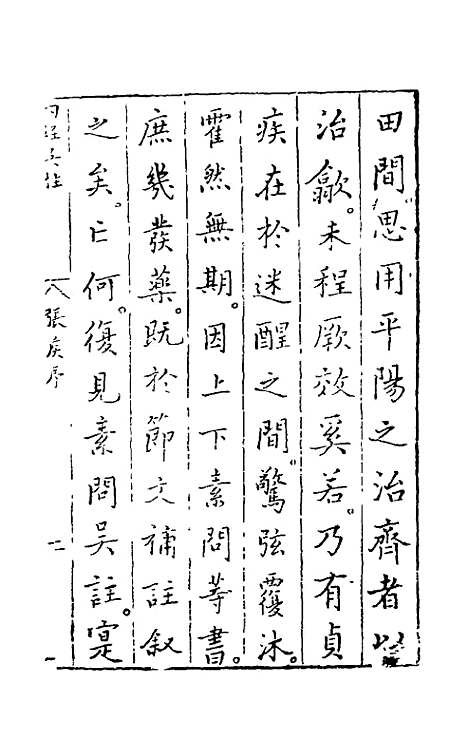 田間思用平陽之治齊者以
治歙。未程厥效奚若。乃有貞
疾在於迷醒之間。驚弦覆沐。
霍然無期。因上下素問等書。
庶幾發藥。既於節文補註叙
之矣。亡何。復見素問吳註。寔
內經吳註
張矦序
二